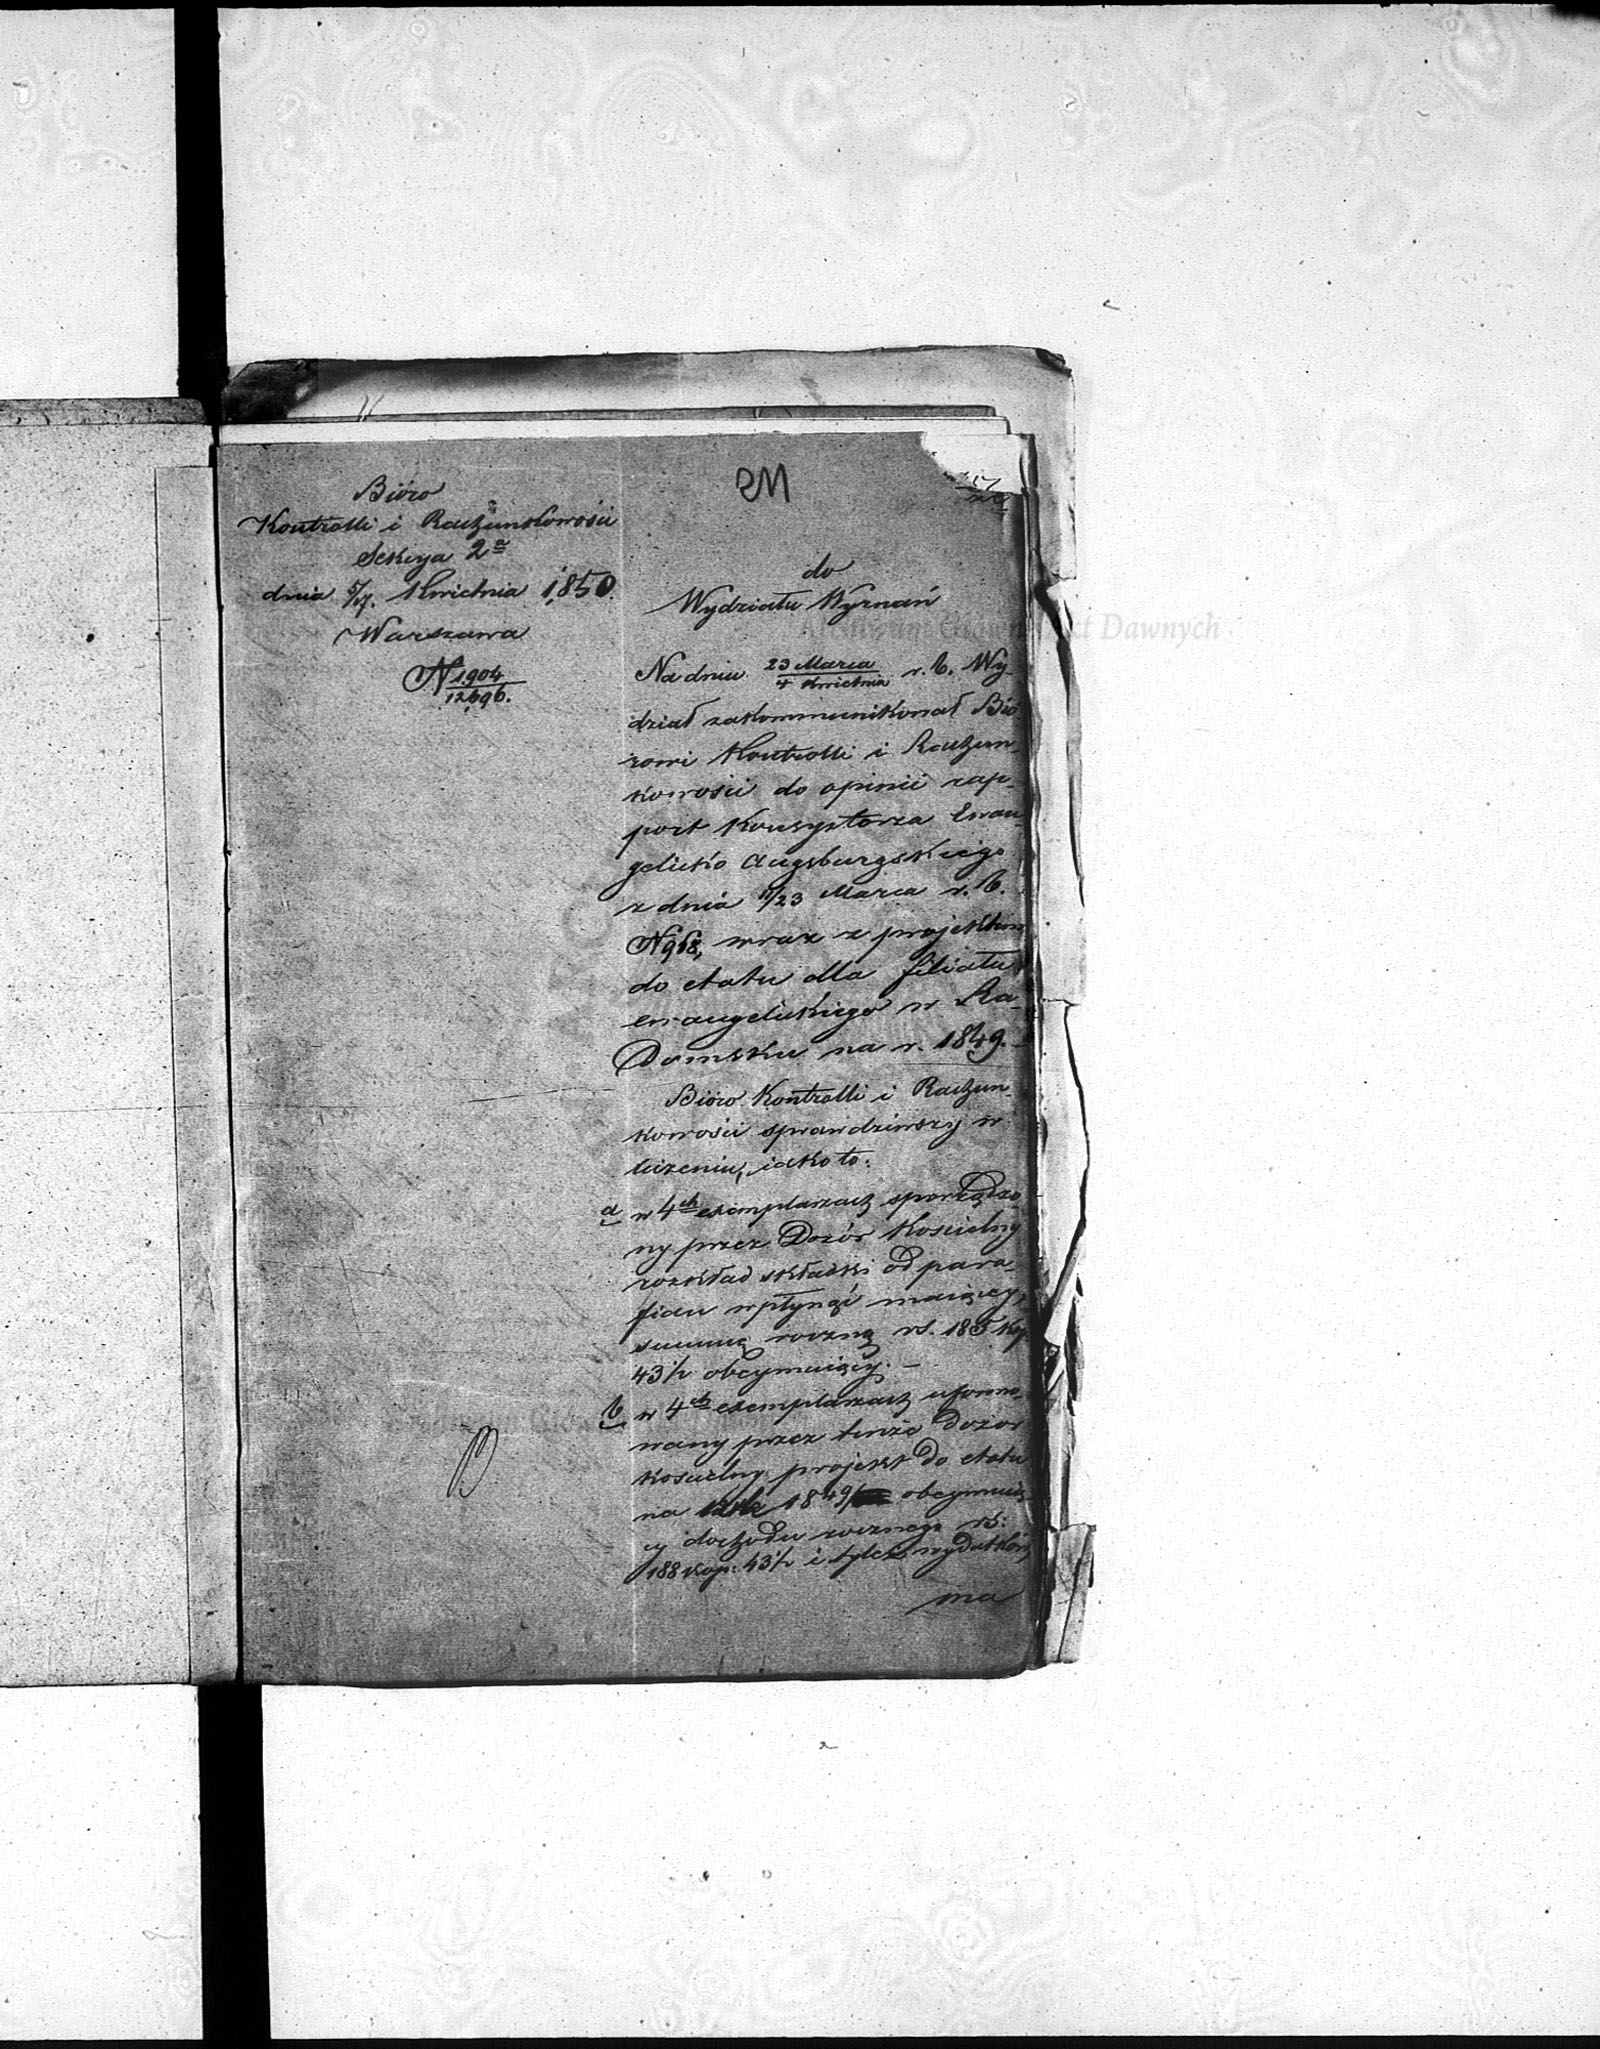 Bióro
Kontrolli i Rachunkowości
Sekcya 2a
dnia 5/17. Kwietnia 1850
Warszawa
N 1904/12696.
do
Wydziału Wyznań
Na dniu 23 Marca/4 Kwietnia r. b. Wy-
dział zakommunikował Bió
rowi Kontrolli i Rachun-
kowości do opinii rap-
port Konsystorza Ewan-
gelicko Augsburgskiego
z dnia 11/23 Marca r. b.
N 968, wraz z projektem
do etatu dla filiału
ewangelickiego w Ra-
Domsku na r. 1849.
Bióro Kontrolli i Rachun-
kowości sprawdziwszy w
liczeniu, iako to:
a w 4ch exemplarzach sporządzo
ny przez Dozór Kościelny
rozkład składki od para-
fian wpłynąć maiącey,
summę roczną rs. 188 kop
43 1/2 obeymuiący. -
b w 4ch exemplarzach uformo-
wany przez tenże Dozór
kościelny projekt do etatu
na 1849/ obeymuią-
cy dochodu rocznego rs:
188 kop: 43 1/2 i tyleż wydatków,
ma
Archiwum Główne Akt Dawnych